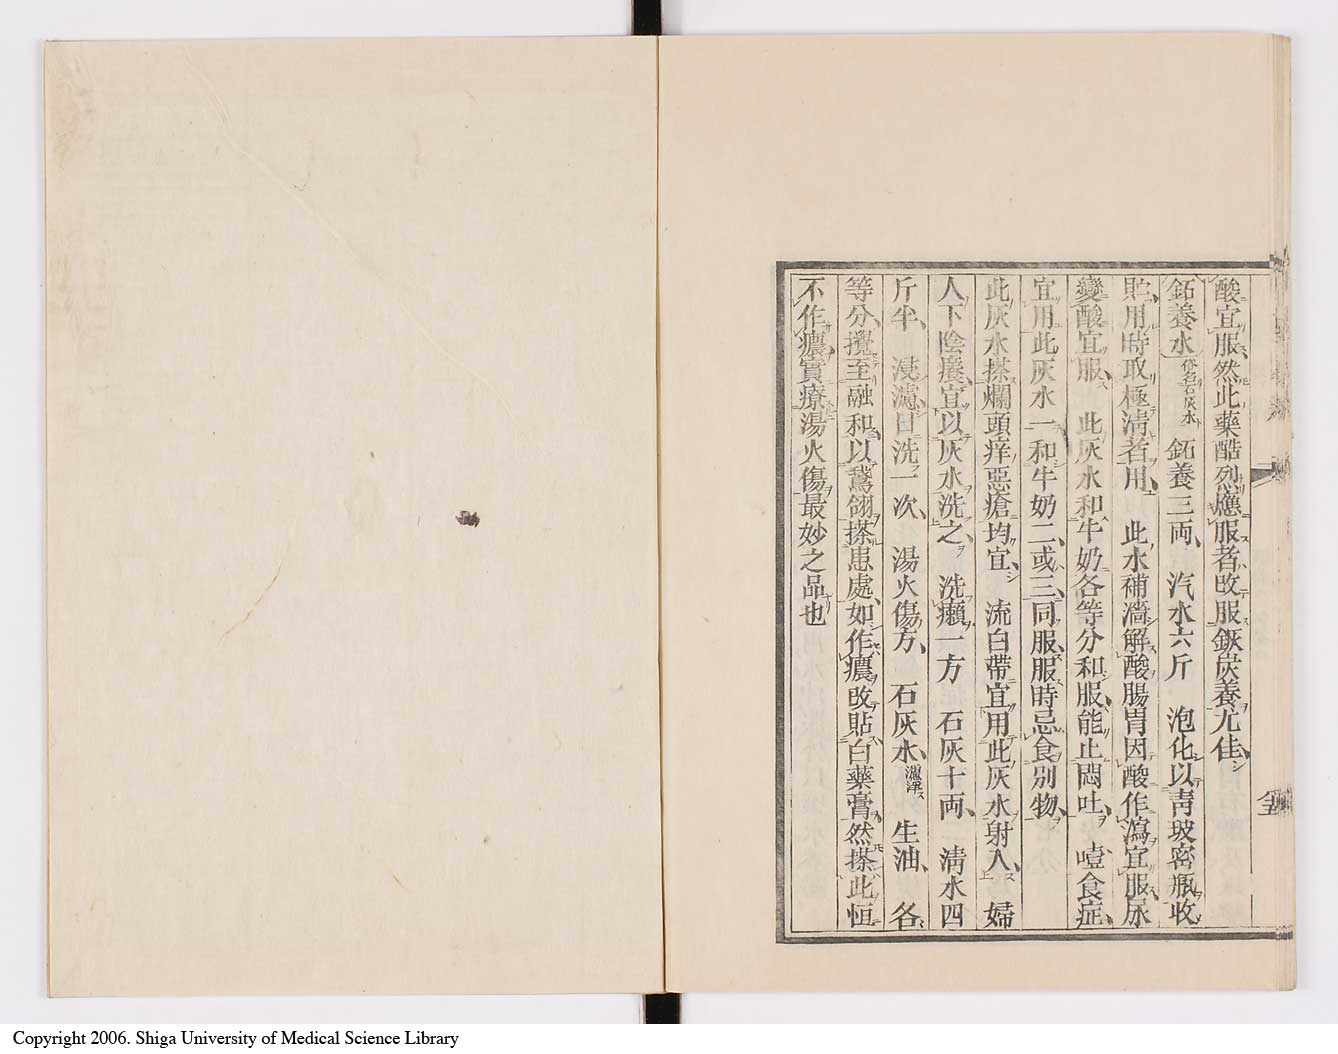 酸宜服然此藥酷烈應服者改服鐝炭養尤佳
鉐養水俗名石灰水　鉐養三両　汽水六斤　泡化以靑玻密瓶收
貯用時取極淸者用　此水補濇解酸腸胃因酸作瀉宜服尿
變酸宜服　此灰水和牛奶各等分和服能止悶吐　噎食症
宜用此灰水一和牛奶二或三同服服時忌食別物
此灰水搽爛頭痒惡瘡均宜　流白帶宜用此灰水射入　婦
人下陰癢宜以灰水洗之　洗癩一方　石灰十両　淸水四
斤半　浸濾日洗一次　湯火傷方　石灰水瀘淨　生油　各
等分攪至融和以鵞翎搽患處如作癑改貼白藥膏然搽此恒
不作癑實療湯火傷最妙之品也
Copyright 2006. Shiga University of Medical Science Library